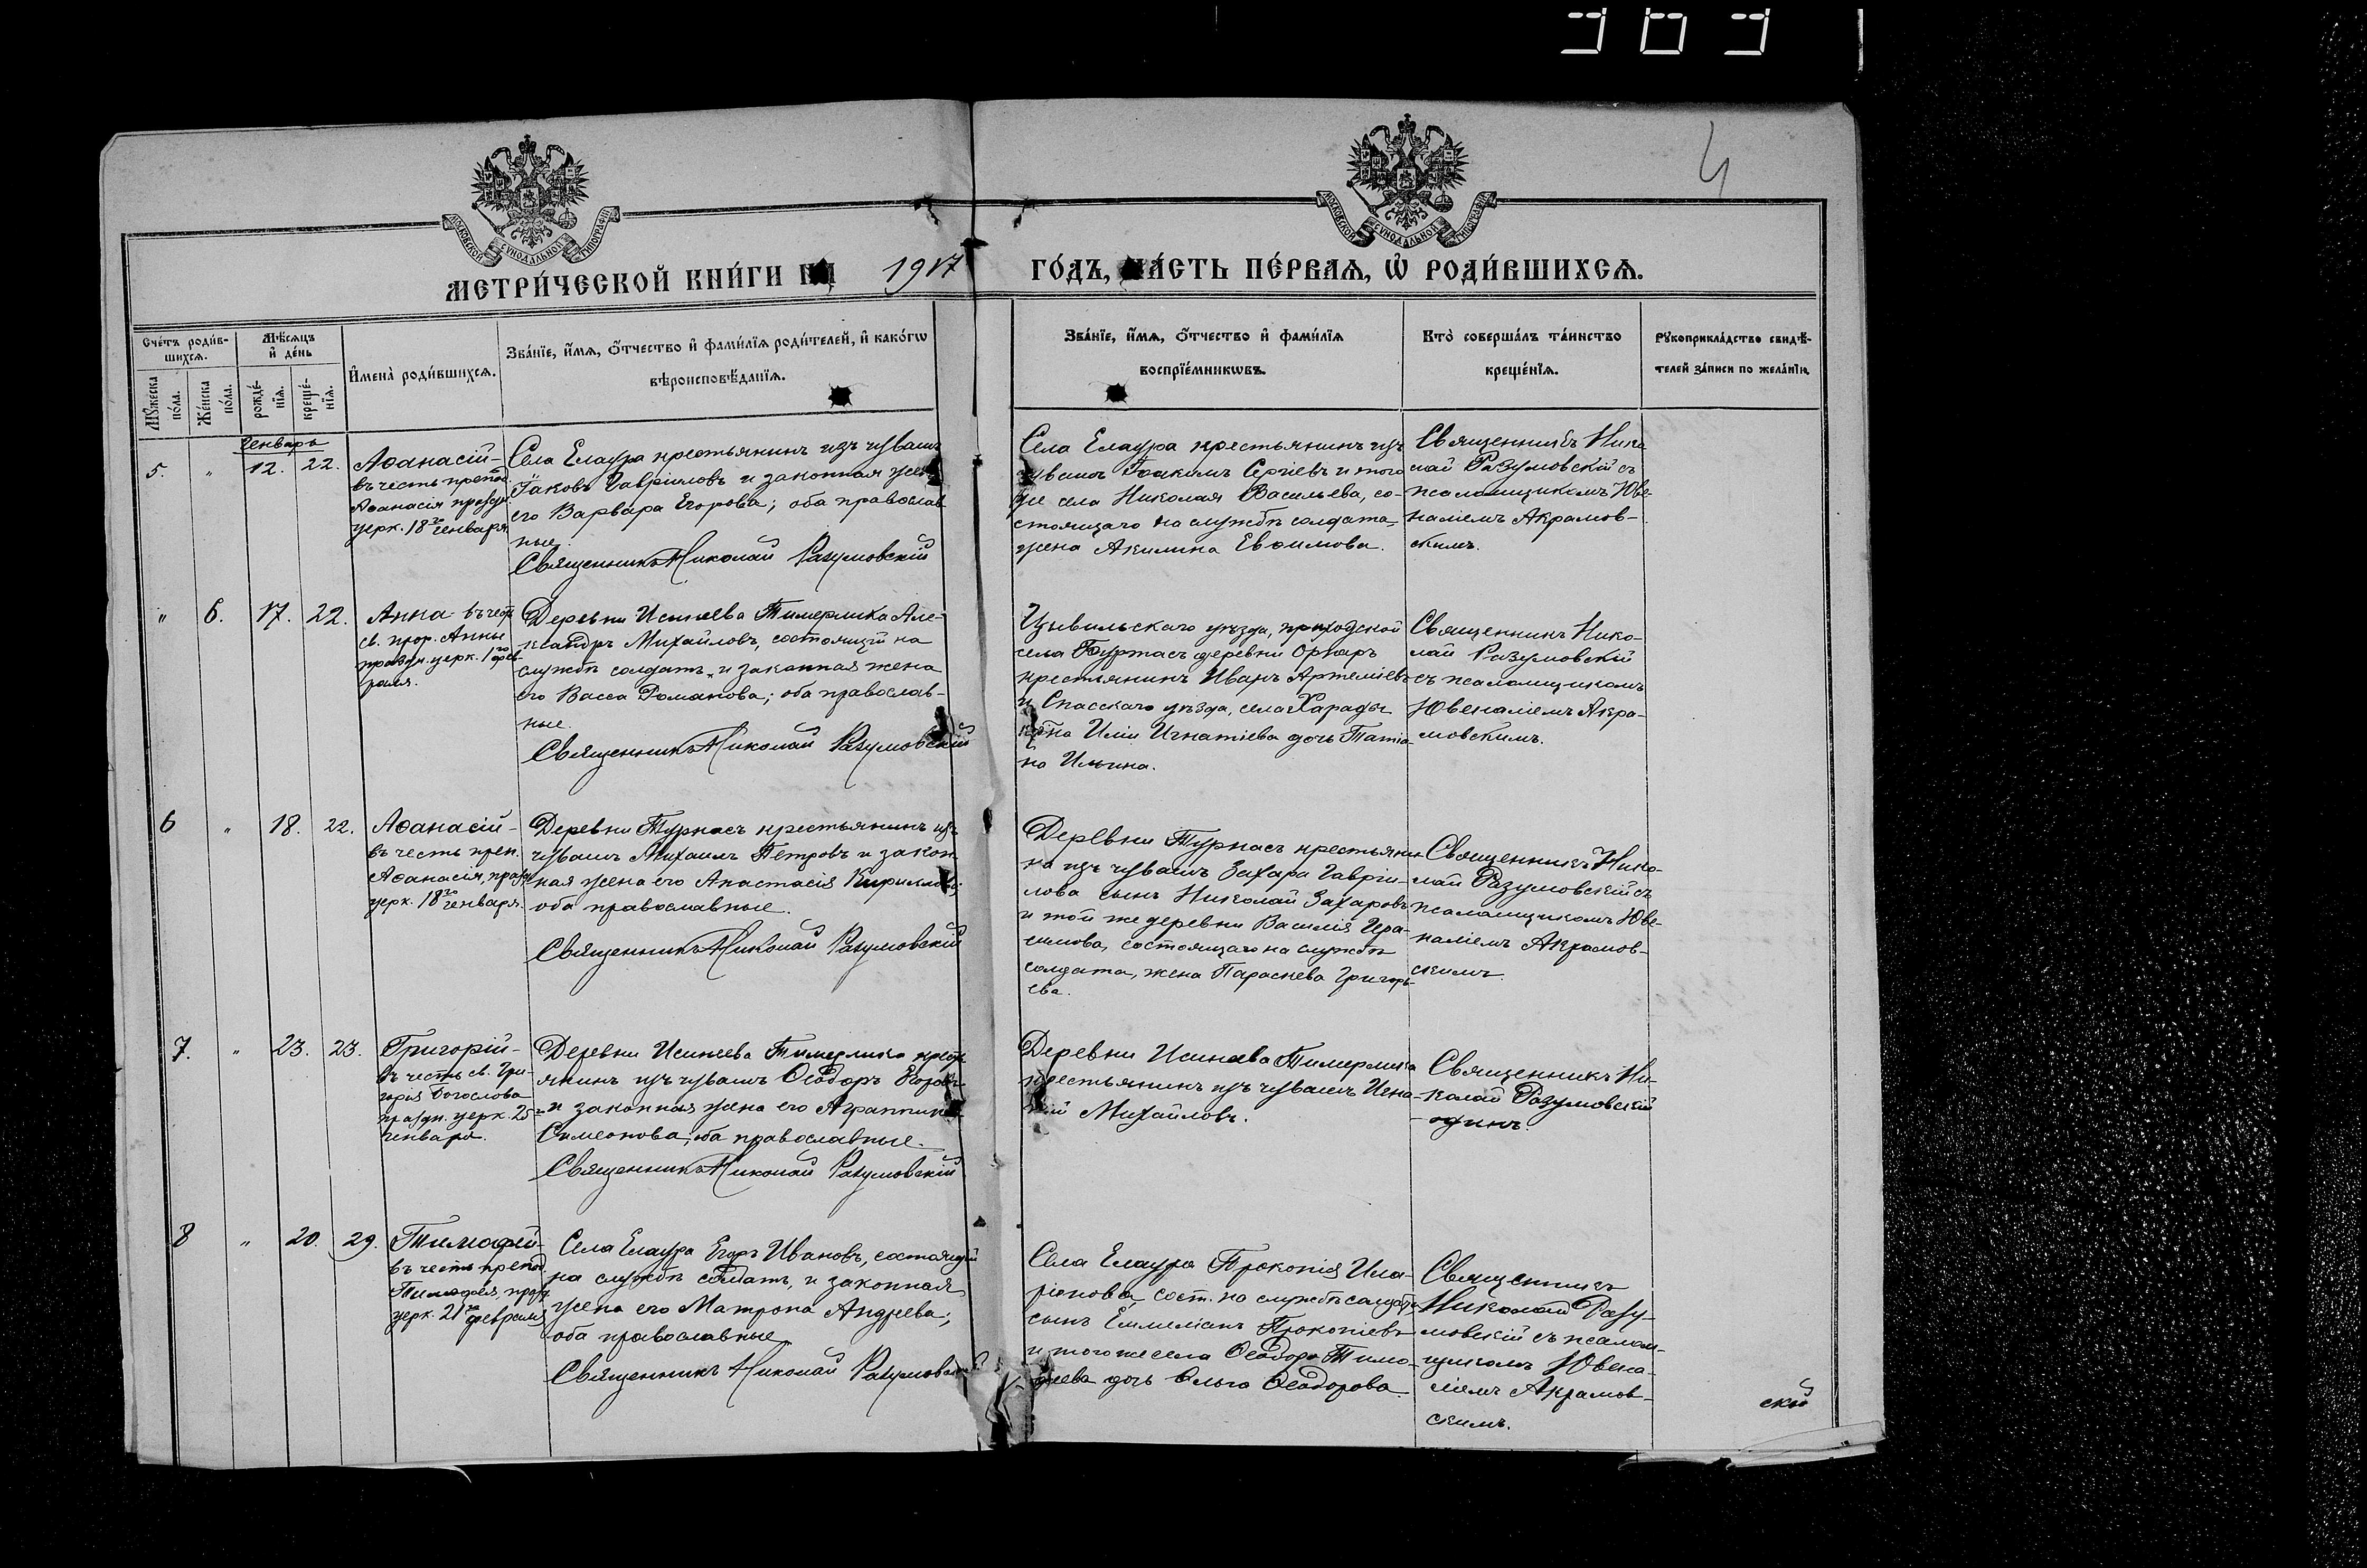 4
МОСКОВСКОЙ СѴНОДАЛЬНОЙ ТИПОГРАФІИ
МОСКОВСКОЙ СѴНОДАЛЬНОЙ ТИПОГРАФІИ
МЕТРИ́ЧЕСКОЙ КНИ́ГИ НА 1917 ГО́ДЪ, ЧА́СТЬ ПЕ́РВАѦ, Ѽ РОДИ́ВШИХСѦ.
Сче́тъ роди́в-
шихсѧ.
Мꙋ́жеска по́ла.
Же́нска по́ла.
Мѣ́сѧцъ
и҆ де́нь
рожде́-
нїѧ.
креще́-
нїѧ.
И҆мена̀ роди́вшихсѧ.
Зва́нїе, и҆́мѧ, ѻ҆́тчество и҆ фами́лїѧ роди́телей, и҆ како́гѡ
вѣроисповѣ́данїѧ.
Зва́нїе, и҆́мѧ, ѻ҆́тчество и҆ фами́лїѧ
воспрїе́мникѡвъ.
Кто̀ соверша́лъ та́инство
креще́нїѧ.
Рꙋкоприкла́дство свидѣ́-
телей за́писи по жела́нїю.
Генварь
5. " 12. 22.
Аѳанасій-
въ честь препод.
Аѳанасія праздн.
церк. 18го генваря
Села Елаура крестьянинъ изъ чувашъ
Іаковъ Гавріиловъ и законная жена
его Варвара Егорова; оба православ
ные.
Священникъ Николай Разумовскій
Села Елаура крестьянинъ изъ
чувашъ Іоакимъ Сергіевъ и того
же села Николая Васильева, со-
стоящаго на службѣ солдата,
жена Акилина Евѳимова.
Священникъ Нико
лай Разумовскій съ
псаломщикомъ Юве-
наліемъ Акрамов-
скимъ.
" 6. 17. 22.
Анна въ честь
св. прор. Анны
праздн. церк. 1го фев-
раля.
Деревни Исинеева Тимерлика Але-
ксандръ Михайловъ, состоящій на
службѣ солдатъ, и законная жена
его Васса Романова; оба православ-
ные.
Священникъ Николай Разумовскій
Цывильскаго уѣзда, приходской
села деревни
крестьянинъ Иванъ Артеміевъ
и Спасскаго уѣзда, села
Иліи Игнатіева дочь Татіа-
на Ильина.
Священникъ Нико-
лай Разумовскій
съ псаломщикомъ
Ювеналіемъ Акра-
мовскимъ.
6 " 18. 22.
Аѳанасій-
въ честь преп.
Аѳанасія, праздн.
церк. 18го генваря.
Деревни Турнасъ крестьянинъ изъ
чувашъ Михаилъ Петровъ и закон
ная жена его Анастасія Кириллова;
оба православные.
Священникъ Николай Разумовскій
Деревни Турнасъ крестьяни-
на изъ чувашъ Захара Гавріи-
лова сынъ Николай Захаровъ
и той же деревни Василія Гера-
симова, состоящаго на службѣ
солдата, жена Параскева Григорь-
ева.
Священникъ Нико-
лай Разумовскій съ
псаломщикомъ Юве-
наліемъ Акрамов-
скимъ.
7. " 23. 23.
Григорій-
въ честь св. Гри-
горія Богослова
праздн. церк. 25го
генваря.
Деревни Исинеева Тимерлика кресть
янинъ изъ чувашъ Ѳеодоръ Егоровъ
и законная жена его Агриппина
Симеонова; оба православные.
Священникъ Николай Разумовскій
Деревни Исинеева Тимерлика
крестьянинъ изъ чувашъ Игна-
тій Михайловъ.
Священникъ Ни-
колай Разумовскій
одинъ.
8 " 20. 29.
Тимоѳей-
въ честь препод.
Тимоѳея, праздн.
церк. 21го февраля
Села Елаура Егоръ Ивановъ, состоящій
на службѣ солдатъ, и законная
жена его Матрона Андреева;
оба православные
Священникъ Николай Разумовскій
Села Елаура Прокопія Ила-
ріонова, сост. на службѣ солдата
сынъ Емиліанъ Прокопіевъ
и того же села Ѳеодора Тимо-
ѳеева дочь Ольга Ѳеодорова.
Священникъ
Николай Разу-
мовскій съ псалом-
щикомъ Ювена-
ліемъ Акрамов-
скимъ.
скій